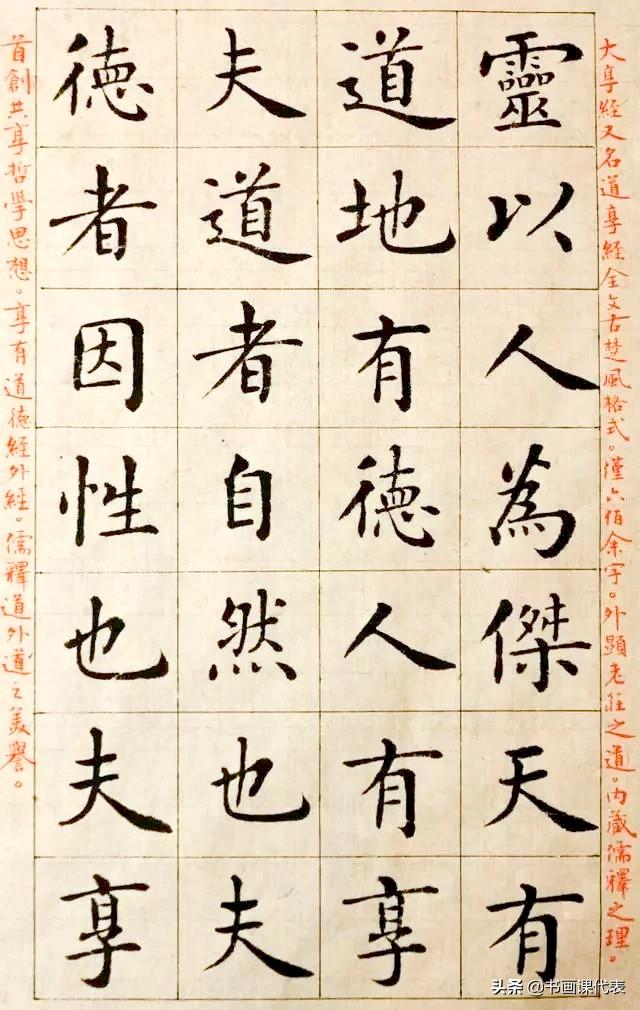 大享经又名道享经全文古楚风格式。僅六佰余字。外顕老莊之道。内藏儒釋之理。
靈以人為傑天有
道地有德人有享
夫道者自然也夫
德者因性也夫享
首創共享哲學思想。享有道德经外经。儒釋道外道之美譽。
头条@书画课代表